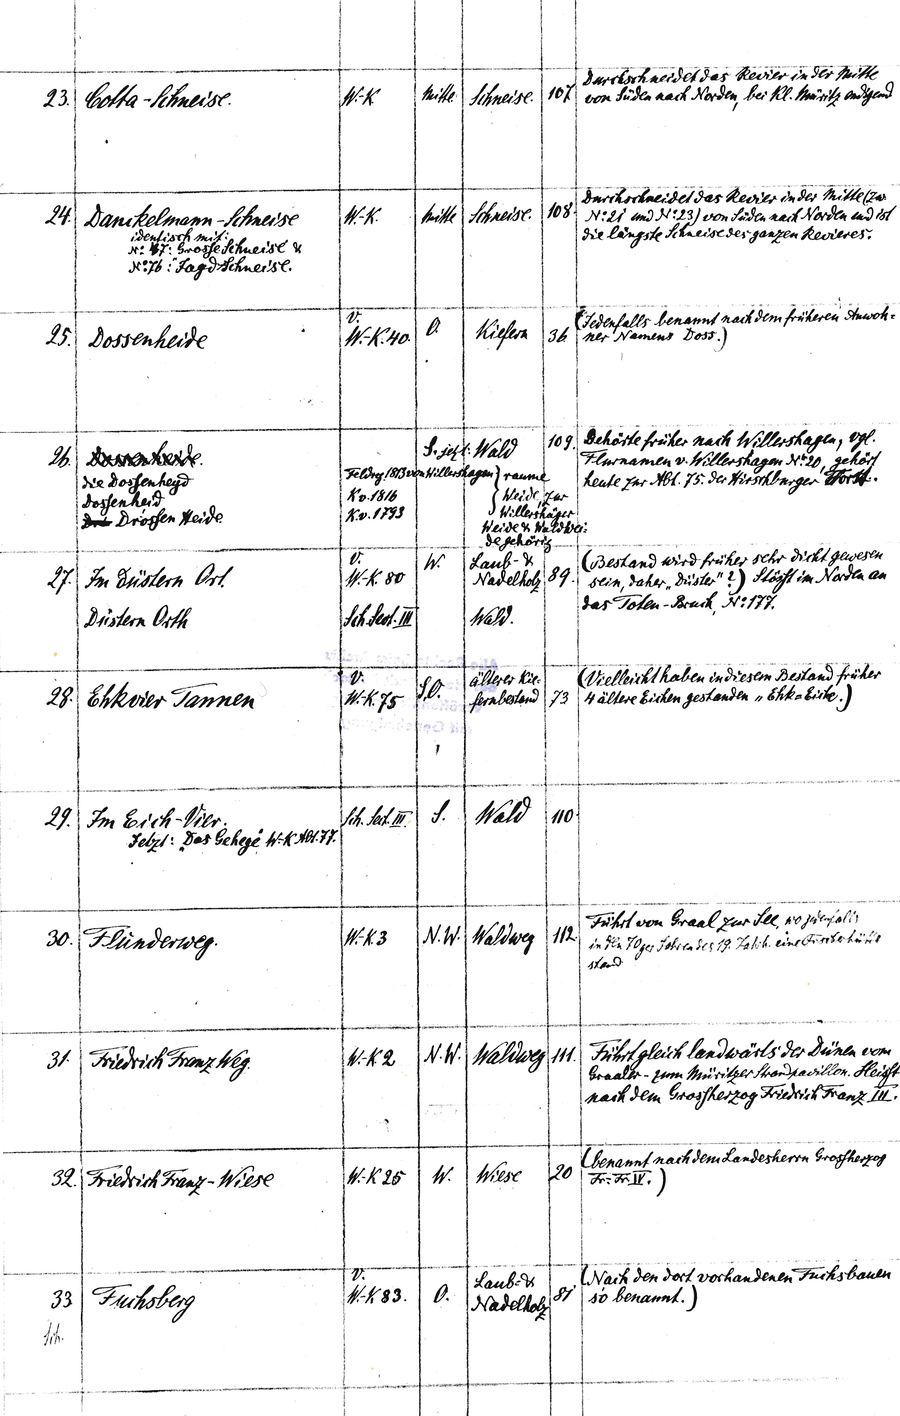 23. Cotta-Schneise. W.-K mitte Schneise. 107 Durchschneidet das Revier in der Mitte
von Süden nach Norden, bei Kl. Müritz endigend
24. Danckelmann-Schneise W.-K. mitte Schneise. 108 Durchschneidet das Revier in der Mitte (zw.
identisch mit: No 21 und No 23) von Süden nach Norden und ist
No 67: Grosse Schneise & die längste Schneise des ganzen Revieres.
No 76: Jagd-Schneise.
25. Dossenheide v. W.-K. 40. O. Kiefern 36 (Jedenfalls benannt nach dem früheren Anwoh-
ner Namens Doss.)
26. S. jetzt Wald 109. Gehörte früher nach Willershagen, vgl.
die Dossenheyd Feldreg. 1813 von Willershagen raume Flurnamen v. Willershagen No 20, gehört
Dossenheid K v. 1816 Weide, zur heute zur Abt. 75. der Hirschburger Forst.
Drossen Heide K. v. 1793 Willershäger
Weide & Waldwei-
de gehörig
27. Im düstern Ort. v. W.-K 80 W. Laub- & Nadelholz 89. (Bestand wird früher sehr dicht gewesen
sein, daher "düster"?) Stößt im Norden an
das Toten-Bruch, No 177.
Düstern Orth Sch. Sect. III Wald.
28. Ehkvier Tannen v. W.-K. 75 S.O. älterer Kie-
fernbestand 73 (Vielleicht haben in diesem Bestand früher
4 ältere Eichen gestanden "Ehk=Eiche.)
29. Im Eich-Vier. Sch. Sect. III. S. Wald 110
Jetzt: "Das Gehege" W.-K Abt. 77.
30. Flünderweg. W.-K 3 N.W. Waldweg 112 Führt von Graal zur See, wo jedenfalls
in den 70ger Jahren des 19. Jahrh. eine Fischerhütte
stand
31. Friedrich Franz Weg. W.-K 2 N.W. Waldweg 111. Führt gleich landwärts der Dünen vom
Graaler- zum Müritzer Strandpavillon. Heißt
nach dem Grossherzog Friedrich Franz III.
32. Friedrich Franz-Wiese W.-K 25 W. Wiese 20 (benannt nach dem Landesherrn Grossherzog
Fr. Fr. IV.)
33 Fuchsberg v. W.-K 83. O. Laub- &
Nadelholz 81 (Nach den dort vorhandenen Fuchsbauen
so benannt.)